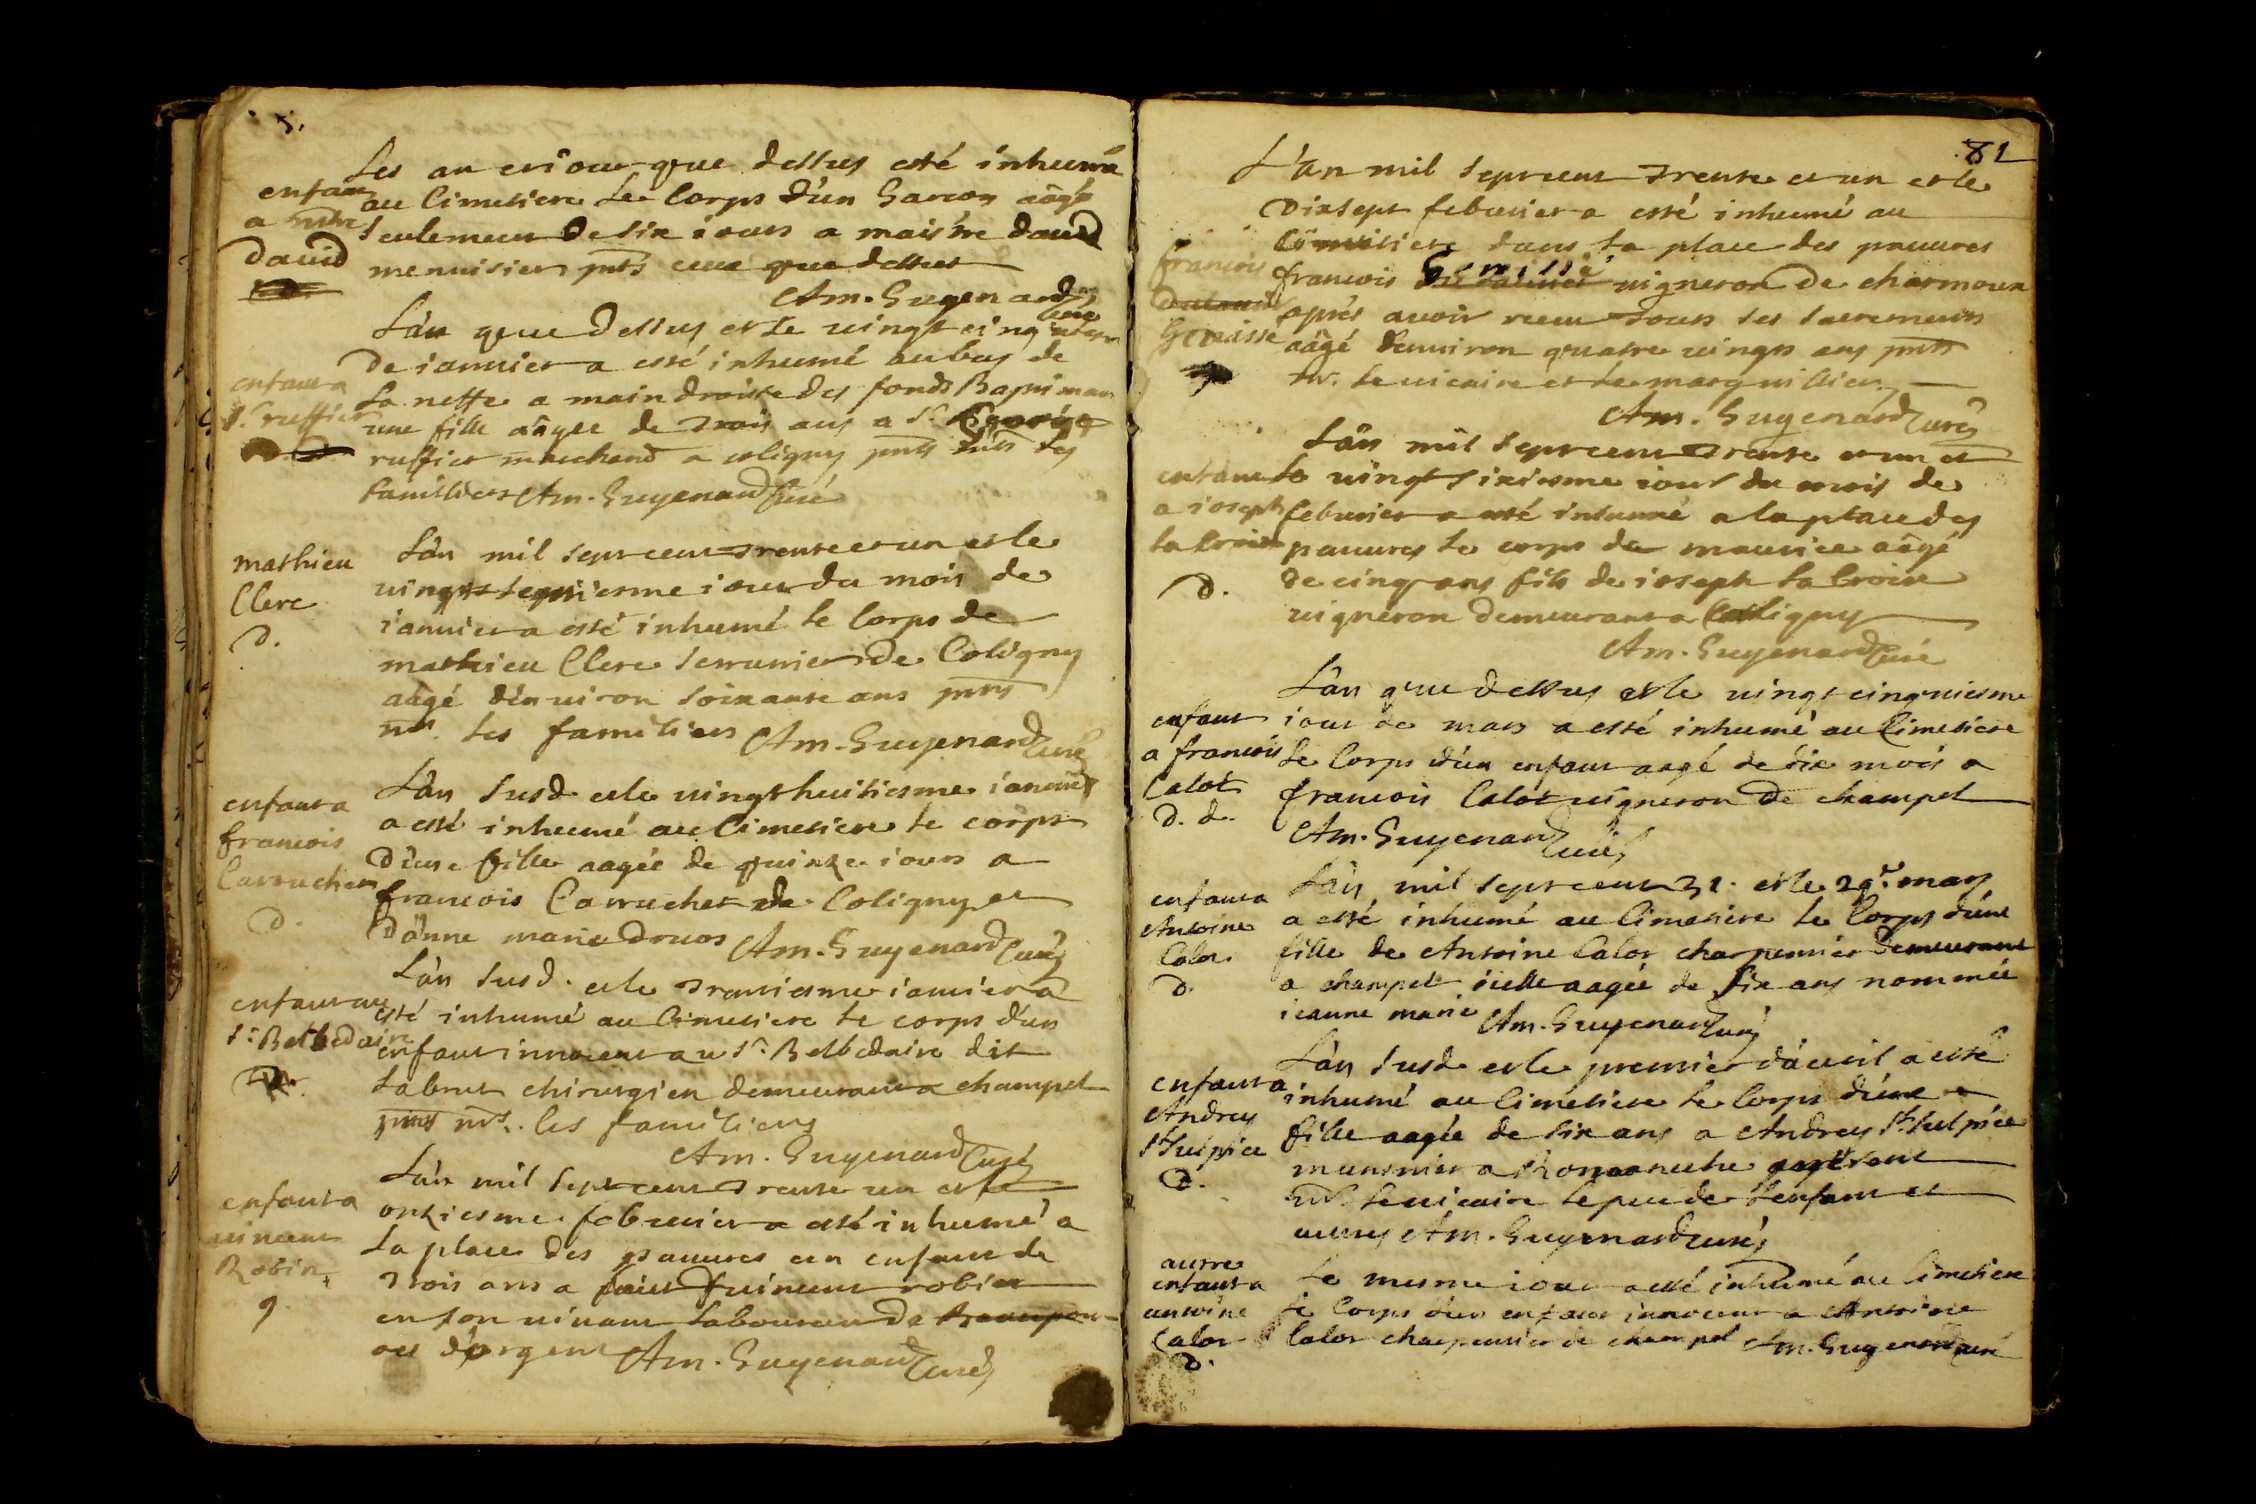 Les an et iour que dessus esté inhumé
enfant
a mtre
david
au Cimetiere Le Corps d'un Garcon aagé
seulement De six iours a maistre david
menuisier pnts ceux que dessus
Am. Guyenard curé
L'an que Dessus et Le vingt cinq
De ianvier a esté inhumé au bas de
enfant a
Sr. ruffier
La neffe a main droitte des fonds Baptimaux
une fille aagée de trois ans a Sr.
ruffier marchand a coligny pnts mrs les
familiers Am. Guyenard Curé
mathieu
Clerc
d.
L'an mil sept cent trente et un et le
vingt septiesme iour du mois de
ianvier a esté inhumé le Corps de
mathieu Clerc serrurier de Coligny
aagé d'environ soixante ans pnts
mrs. les familiers Am. Guyenard Curé
enfant a
francois
Carruchet
d.
L'an susd. et le vingt huitiesme ianvier
a esté inhumé au Cimetiere le corps
D'une fille aagée de quinze iours a
francois Carruchet de Coligny et
D'anne marie druos Am. Guyenard Curé
enfant au
Sr. Belbedaire
L'an susd. et le trentiesme ianvier a
esté inhumé au Cimetiere le corps d'un
enfant innocent au Sr. Belbedaire dit
labrut chirurgien demeurant a champel
pnts mrs. les familiers
Am. Guyenard Curé
enfant a
vincent
Robin
L'an mil sept cent trente un et le
onziesme febvrier a esté inhumé a
La place des pauvres un enfant de
trois ans a vincent robin
en son vivant laboureur de
ou d'orgent Am. Guyenard Curé
81
L'an mil sept cent trente et un et le
Dixsept febvrier a esté inhumé au
Cimitiere dans la place des pauvres
francois
Genissé
francois Genissé vigneron de charmoux
aprés avoir receu tous ses sacremens
aagé d'environ quatre vingts ans pnts
mr. le vicaire et le marguillier
Am. Guyenard Curé
L'an mil sept cent trente et un et
enfant
a ioseph
la Croix
d.
le vingt sixiesme iour du mois de
febvrier a esté inhumé a la place des
pauvres le corps de maurice aagé
de cinq ans fils de ioseph la Croix
vigneron demeurant a Colligny
Am. Guyenard Curé
enfant
a francois
Calot
d. d.
L'an que dessus et le vingt cinquiesme
iour de mars a esté inhumé au Cimetiere
le Corps d'un enfant aagé de dix mois a
francois Calot vigneron de champel
Am. Guyenard Curé
enfant a
Antoine
Calot
d.
L'an mil sept cent 31. et le 29e. mars
a esté inhumé au Cimetiere le Corps d'une
fille de Antoine Calot charpentier demeurant
a champel icelle aagée de six ans nommée
ieanne marie Am. Guyenard Curé
enfant a
Andrey
St Sulpice
d.
L'an susd. et le premier d'avril a esté
inhumé au Cimetiere le Corps d'une
fille aagée de six ans a Andrey St. Sulpice
munsnier a
mr. le vicaire le pere de l'enfant et
autres Am. Guyenard Curé
autre
enfant a
antoine
Calot
d.
Le mesme iour a esté inhumé au Cimetiere
le Corps d'un enfant innocent a Antoine
Calot charpentier de champel Am. Guyenard Curé